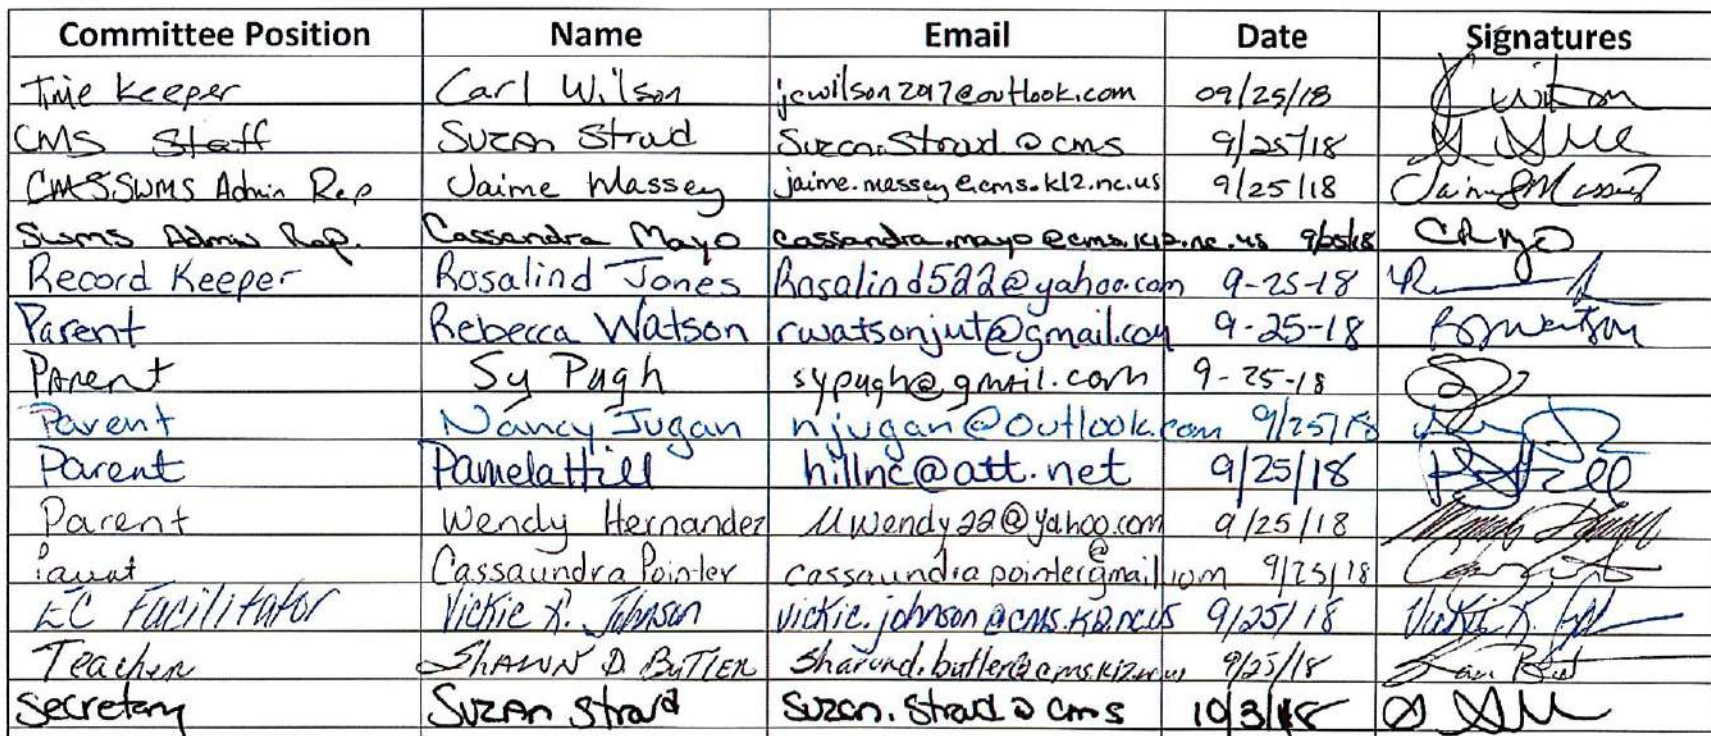 Committee Position Name Email Date Signatures
Time Keeper Carl Wilson jcwilson2917@outlook.com 09/25/18
CMS Staff Suzan Stroud Suzan.Stroud @ cms 9/25/18
CMS SWMS Admin Rep Jaime Massey jaime.massey@cms.k12.nc.us 9/25/18 Jaime Massey
Swms Admin Rep. Cassandra Mayo cassandra.mayo@cms.k12.nc.us 9/25/18
Record Keeper Rosalind Jones Rosalind522@yahoo.com 9-25-18
Parent Rebecca Watson rwatsonjut@gmail.com 9-25-18
Parent Sy Pugh sypugh@gmail.com 9-25-18
Parent Nancy Jugan njugan@outlook.com 9/25/18
Parent Pamela Hill hillnc@att.net 9/25/18
Parent Wendy Hernandez Uwendy22@yahoo.com 9/25/18
Parent Cassaundra Pointer cassaundrapointer@gmail.com 9/25/18
EC Facilitator Vickie K. Johnson vickie.johnson@cms.k12.nc.us 9/25/18
Teacher SHAWN D. BUTLER shawnd.butler@cms.k12.nc.us 9/25/18
Secretary Suzan Stroud Suzan.Stroud @ cms 10/3/18